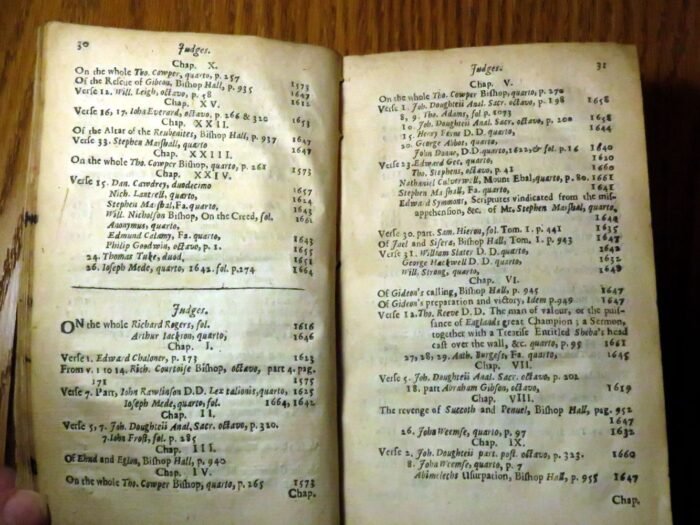 30
Judges.
Chap. X.
On the whole Tho. Cowper, quarto, p. 257 1573
Of the Rescue of Gibeon, Bishop Hall, p. 935 1647
Verse 12. Will. Leigh, octavo, p. 58 1612
Chap. XV.
Verse 16, 17. Ioha Everard, octavo, p. 266 & 320 1653
Chap. XXII.
Of the Altar of the Reubenites, Bishop Hall, p. 937 1647
Verse 33. Stephen Marshall, quarto 1647
Chap. XXIII.
On the whole Tho. Cowper Bishop, quarto, p. 261 1573
Chap. XXIV.
Verse 15. Dan. Cawdrey, duodecimo 1657
Nich. Lantrell, quarto, 1624
Stephen Marshal, Fa. quarto, 1643
Will. Nicholson Bishop, On the Creed, fol. 1661
Anonymus, quarto,
Edmund Calamy, Fa. quarto, 1643
Philip Goodwin, octavo, p. 1. 1655
24. Thomas Tuke, duod, 1651
26. Ioseph Mede, quarto, 1642. fol. p.274 1664
Judges.
ON the whole Richard Rogers, fol. 1616
Arthur Iackson, quarto, 1646
Chap. I.
Verse 1. Edward Chaloner, p. 173 1623
From v. 1 to 14. Rich. Courtoise Bishop, octavo, part 4. pag.
171 1575
Verse 7. Part, Iohn Rawlinson D.D. Lex talionis, quarto, 1625
Ioseph Mede, quarto, fol. 1664, 1642
Chap. II.
Verse 5, 7. Joh. Doughteii Anal. Sacr. octavo, p. 320.
7. Iohn Frost, fol. p. 285
Chap. III.
Of Ehud and Eglon, Bishop Hall, p. 940
Chap. IV.
On the whole Tho. Cowper Bishop, quarto, p. 265 1573
Chap.
Judges. 31
Chap. V.
On the whole Tho. Cowper Bishop, quarto, p. 270
Verse 1. Joh. Doughteii Anal. Sacr. octavo, p. 198 1658
8, 9. Tho. Adams, fol p. 1073
10. Joh. Doughteii Anal. Sacr. octavo, p. 200 1658
15. Henry Fanne D.D. quarto, 1644
20. George Abbot, quarto,
John Dunne, D.D. quarto, 1622, & fol. p. 16 1640
Verse 23. Edward Gee, quarto, 1620
Tho. Stephens, octavo, p. 41 1660
Nathaniel Culverwell, Mount Ebal, quarto, p. 80. 1661
Stephen Marshall, Fa. quarto, 1641
Edward Symmons, Scriptures vindicated from the mis-
apprehension, &c. of Mr. Stephen Marshal, quarto,
1644
Verse 30. part. Sam. Hieron, fol. Tom. 1. p. 441 1635
Of Jael and Sisera, Bishop Hall, Tom. 1. p. 943 1647
Verse 31. William Slater D.D. quarto, 1642
George Hackwell D.D. quarto, 1632
Will. Strong, quarto, 1648
Chap. VI.
Of Gideon's calling, Bishop Hall, p. 945 1647
Of Gideon's preparation and victory, Idem p. 949 1647
Verse 12. Tho. Reeve D.D. The man of valour, or the puis-
sance of Englands great Champion; a Sermon,
together with a Treatise Entitled Sheba's head
cast over the wall, &c. quarto, p. 95 1661
27, 28, 29. Anth. Burgess, Fa. quarto, 1645
Chap. VII.
Verse 5. Joh. Doughteii Anal. Sacr. octavo, p. 202
18. part Abraham Gibson, octavo, 1619
Chap. VIII.
The revenge of Succoth and Penuel, Bishop Hall, pag. 952
1647
26. John Weemse, quarto, p. 97 1632
Chap. IX.
Verse 2. Joh. Doughteii part. post. octavo, p. 323. 1660
8. John Weemse, quarto, p. 7
Abimelechs Usurpation, Bishop Hall, p. 955 1647
Chap.